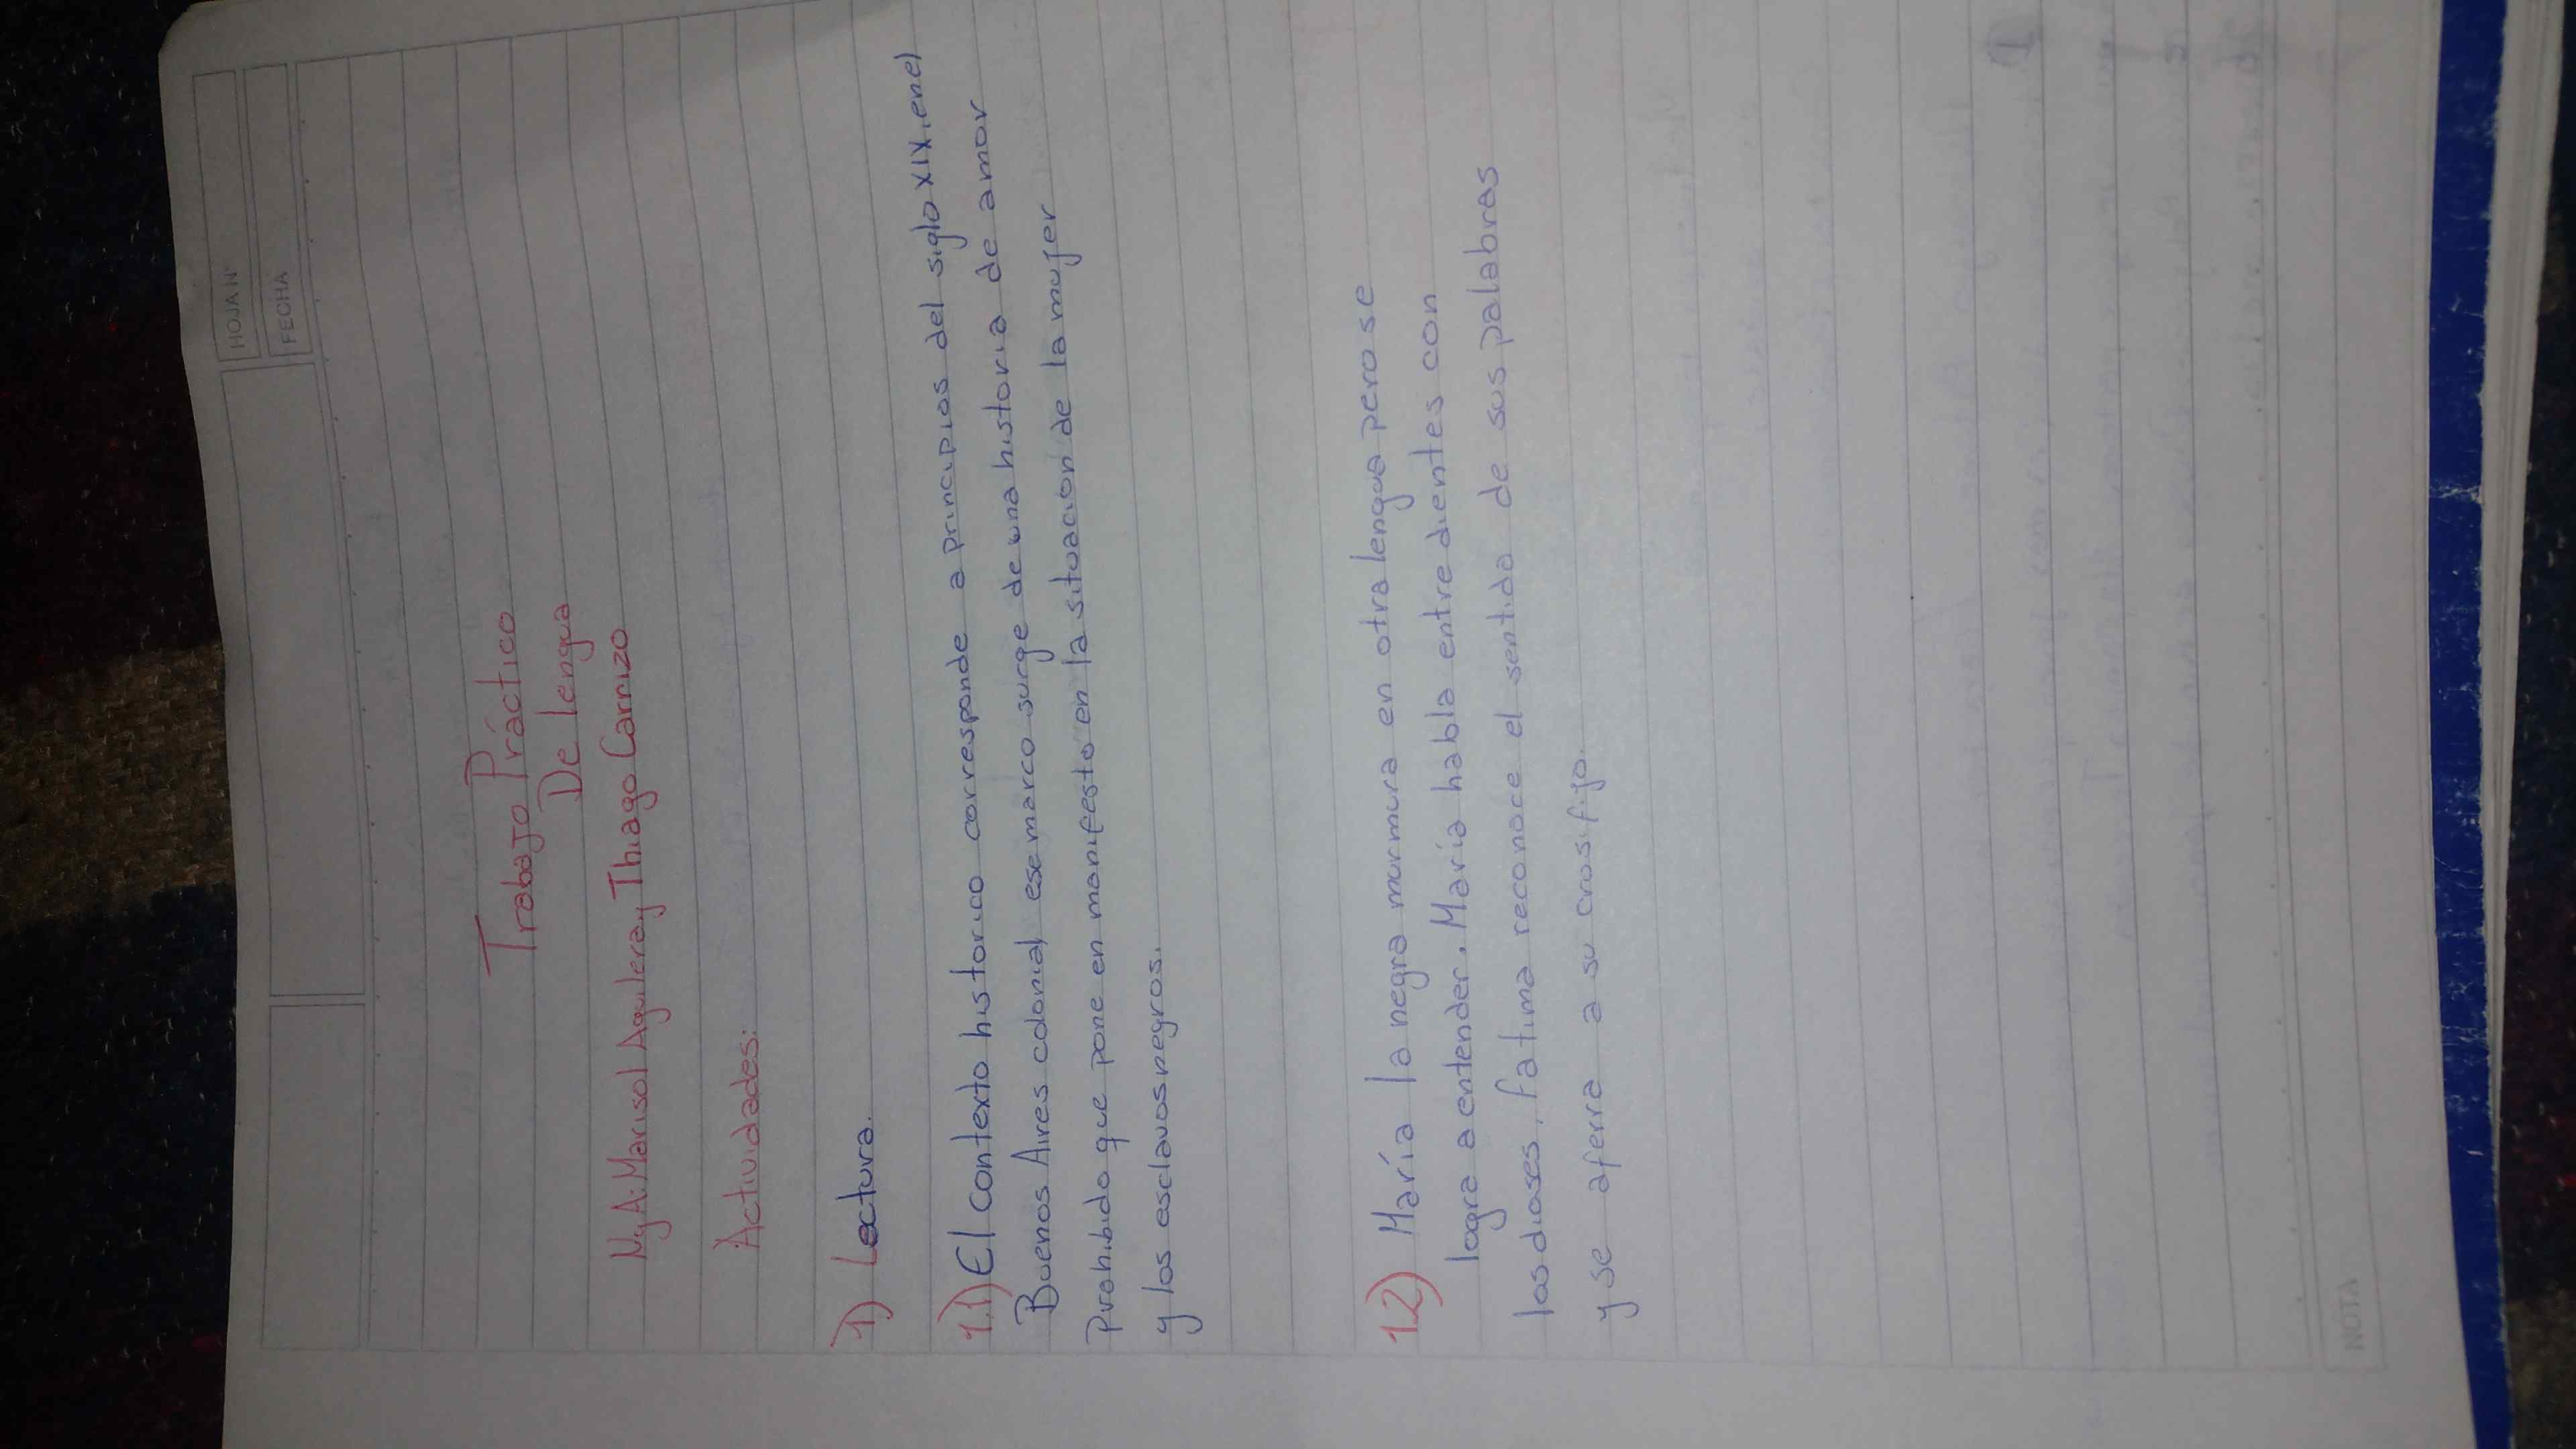 HOJA N°
FECHA
Trabajo Práctico
De lengua
NyA: Marisol Aguilera y Thiago Carrizo
Actividades:
1) Lectura.
1.1) El contexto historico corresponde a principios del siglo XIX, en el
Buenos Aires colonial, ese marco surge de una historia de amor
Prohibido que pone en manifesto en la situacion de la mujer
y los esclavos negros.
1.2) María la negra murmura en otra lengua pero se
logra a entender, María habla entre dientes con
los dioses, fatima reconoce el sentido de sus palabras
y se aferra a su crusifijo.
NOTA